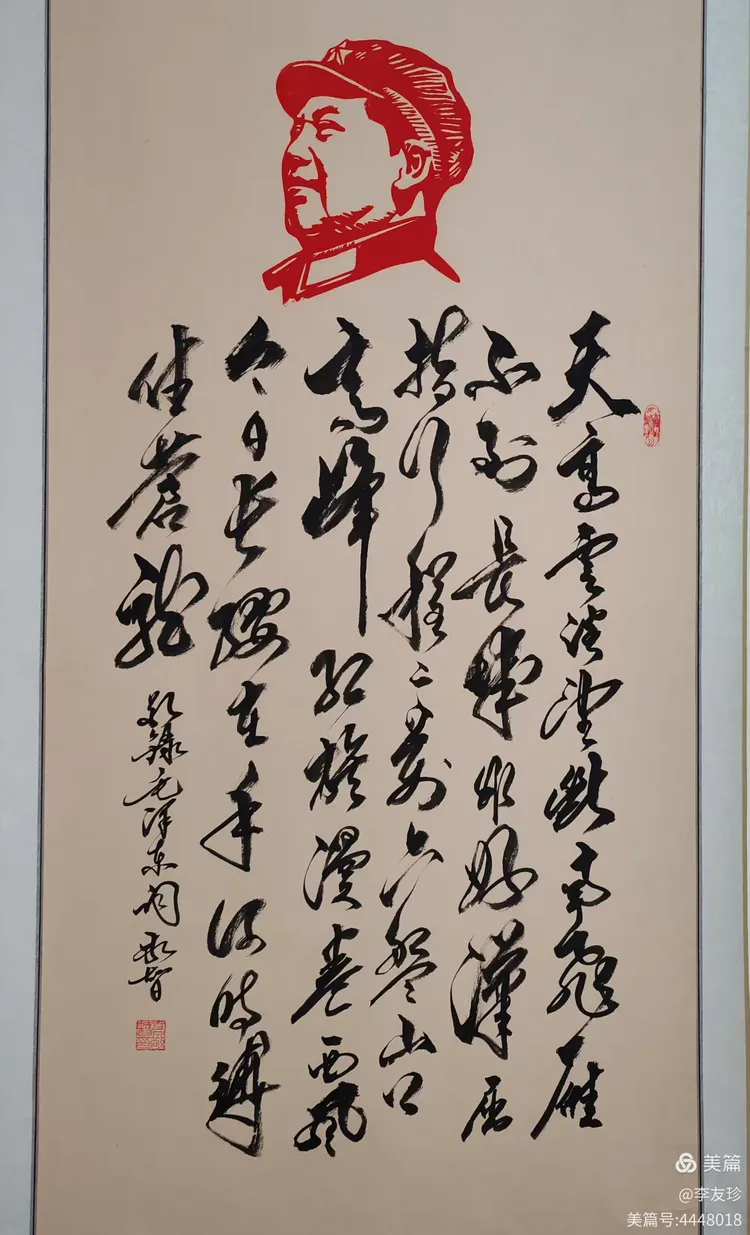 天高雲淡望斷南飛雁
不到長城非好漢屈
指行程二萬六盤山上
高峰紅旗漫卷西風
今日長纓在手何時縛
住蒼龍
敬錄毛澤東詞
美篇
@李友珍
美篇号:4448018